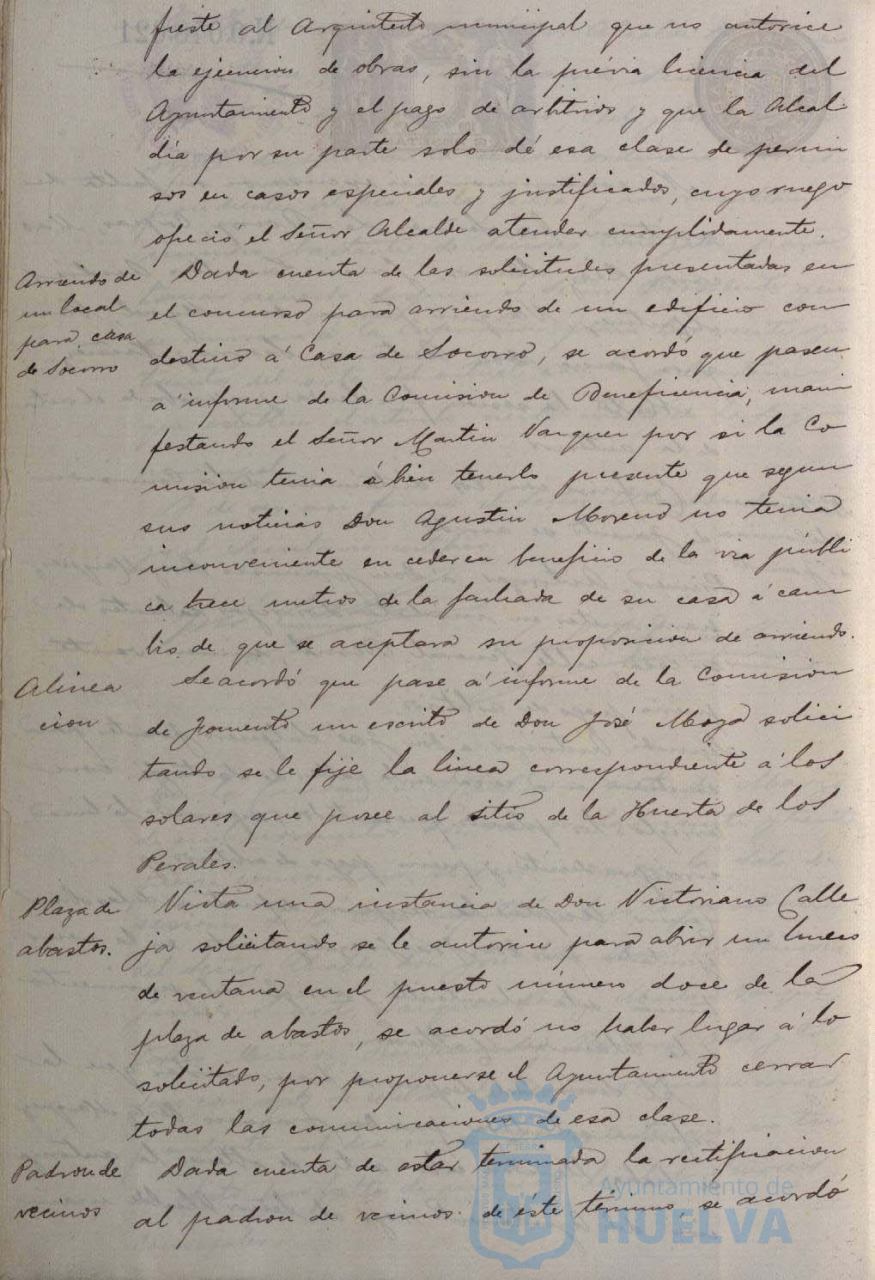 fieste al Arquitecto municipal que no autorice
la ejecucion de obras, sin la prévia licencia del
Ayuntamiento y el pago de arbitrios y que la Alcal
día por su parte solo dé esa clase de permi
sos en casos especiales y justificados, cuyo ruego
ofreció el Señor Alcalde atender cumplidamente.
Arriendo de
un local
para casa
de Socorro
Dada cuenta de las solicitudes presentadas en
el concurso para arriendo de un edificio con
destino á Casa de Socorro, se acordó que pasen
a informe de la Comision de Beneficencia, mani
festando el Señor Martin Vazquez por si la Co
mision tenia á bien tenerlo presente que segun
sus noticias Don Agustin Moreno no tenia
inconveniente en ceder en beneficio de la via públi
ca trece metros de la fachada de su casa á cam
bio de que se aceptara su proposicion de arriendo.
Alinea
cion
Se acordó que pase á informe de la Comision
de Fomento un escrito de Don José Moya solici
tando se le fije la linea correspondiente á los
solares que posee al sitio de la Huerta de los
Perales.
Plaza de
abastos.
Vista una instancia de Don Victoriano Calle
ja solicitando se le autorice para abrir un hueco
de ventana en el puesto número doce de la
plaza de abastos, se acordó no haber lugar á lo
solicitado, por proponerse el Ayuntamiento cerrar
todas las comunicaciones de esa clase.
Padron de
vecinos
Dada cuenta de estar terminada la rectificacion
al padron de vecinos de éste término se acordó
Ayuntamiento de
HUELVA